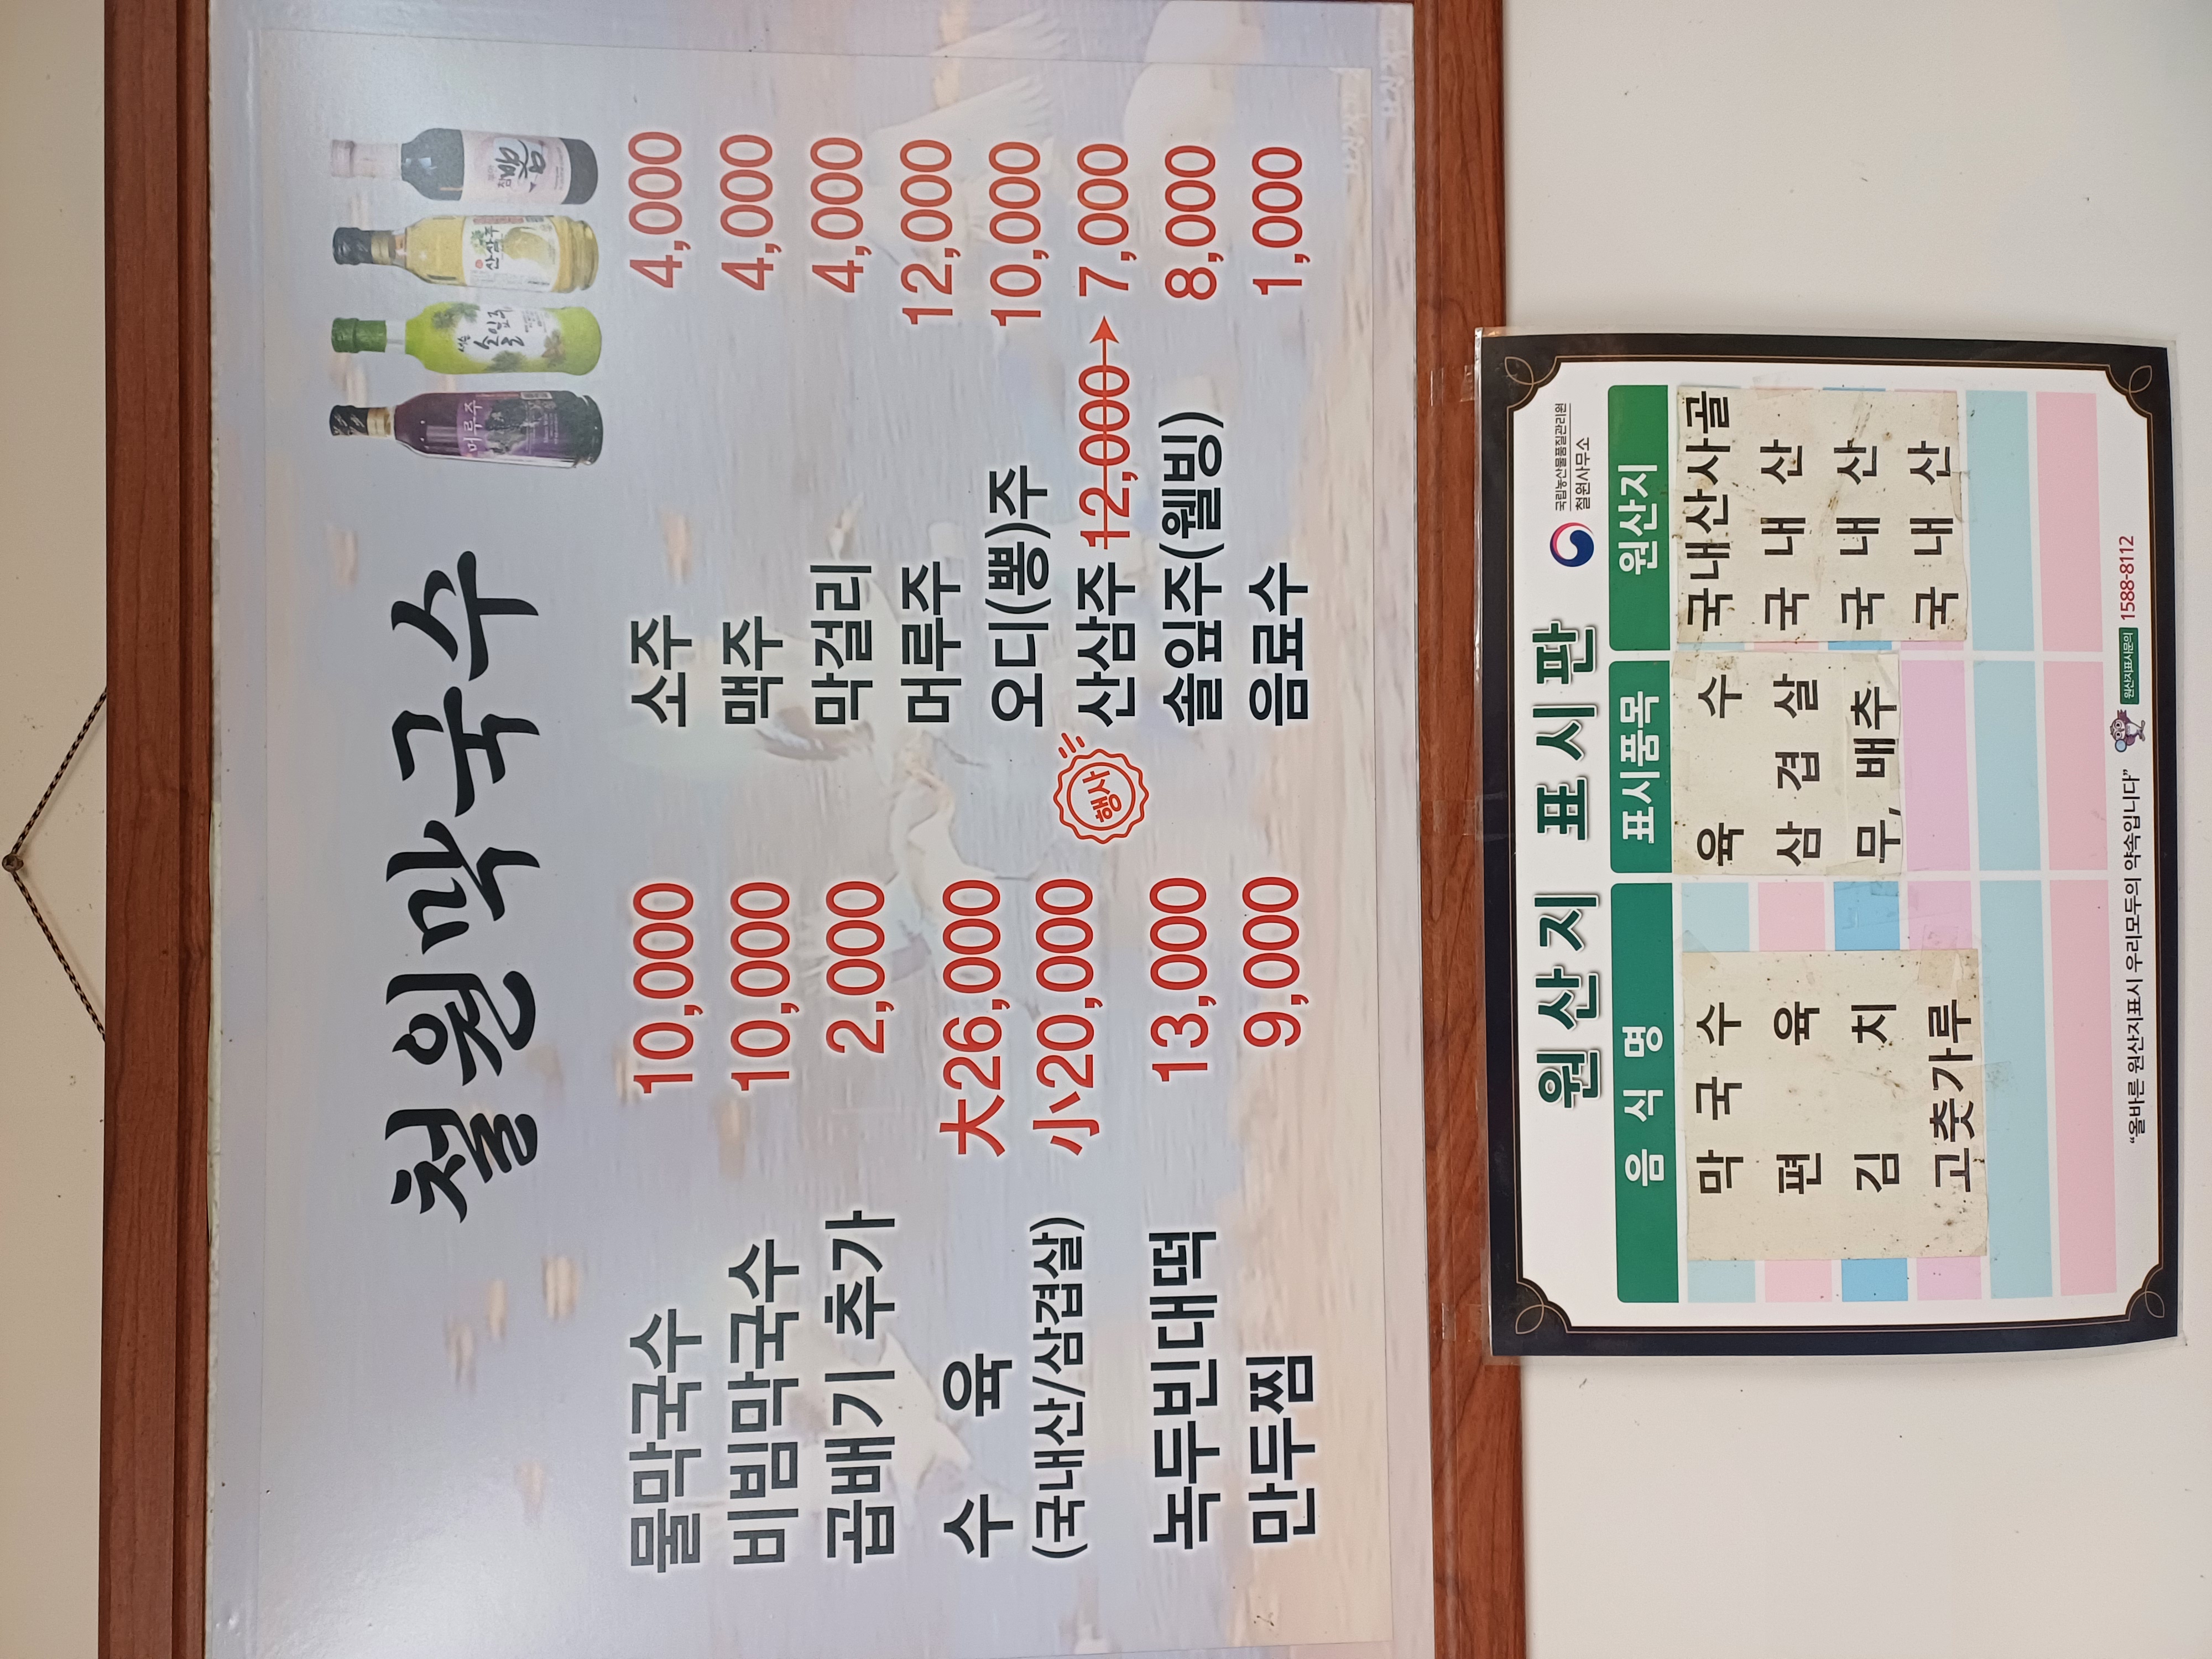 철원막국수
머루주
솔잎주
산삼주
뽕
물막국수 10,000
비빔막국수 10,000
곱배기 추가 2,000
수 육 大26,000
(국내산/삼겹살) 小20,000
녹두빈대떡 13,000
만두찜 9,000
소주 4,000
맥주 4,000
막걸리 4,000
머루주 12,000
오디(뽕)주 10,000
행사 산삼주 12,000 → 7,000
솔잎주(웰빙) 8,000
음료수 1,000
원산지 표시판
국립농산물품질관리원
철원사무소
음식명 표시품목 원산지
막국수 육수 국내산사골
편육 삼겹살 국내산
김치 무, 배추 국내산
고춧가루 국내산
“올바른 원산지표시 우리모두의 약속입니다” 원산지표시문의 1588-8112